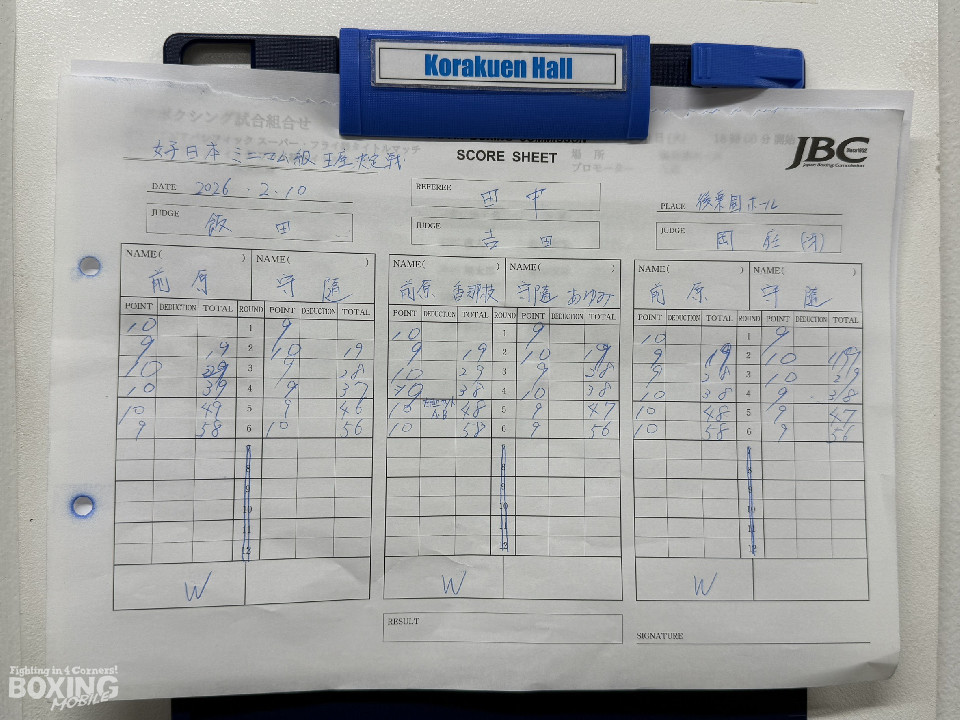 Korakuen Hall
ボクシング試合組合せ
女子日本ミニマム級王座決定戦
SCORE SHEET
JBC
Japan Boxing Commission
DATE 2026.2.10
REFEREE 田中
PLACE 後楽園ホール
JUDGE 飯田
JUDGE 吉田
JUDGE
NAME( ) NAME( )
前原 守隨
POINT DEDUCTION TOTAL ROUND POINT DEDUCTION TOTAL
10 1 9
9 19 2 10 19
10 29 3 9 28
10 39 4 9 37
10 49 5 9 46
9 58 6 10 56
7
8
9
10
11
12
W
NAME( ) NAME( )
前原 香那枝 守隨 あゆみ
POINT DEDUCTION TOTAL ROUND POINT DEDUCTION TOTAL
10 1 9
9 19 2 10 19
10 29 3 9 38
10 38 4 10 38
10 48 5 9 47
10 58 6 9 56
7
8
9
10
11
12
W
NAME( ) NAME( )
前原 守隨
POINT DEDUCTION TOTAL ROUND POINT DEDUCTION TOTAL
10 1 9
9 19 2 10 19
9 28 3 10 29
10 38 4 9 38
10 48 5 9 47
10 58 6 9 56
7
8
9
10
11
12
W
RESULT
SIGNATURE
Fighting in 4 Corners!
BOXING
MOBILE